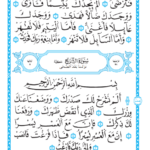 فَتَرْضَىٰ أَلَمْ يَجِدْكَ يَتِيمًا
فَآوَىٰ وَوَجَدَكَ ضَالًّا فَهَدَىٰ
وَوَجَدَكَ عَائِلًا فَأَغْنَىٰ فَأَمَّا الْيَتِيمَ فَلَا تَقْهَرْ
وَأَمَّا السَّائِلَ فَلَا تَنْهَرْ وَأَمَّا بِنِعْمَةِ رَبِّكَ
بِسْمِ اللَّهِ الرَّحْمَٰنِ الرَّحِيمِ
أَلَمْ نَشْرَحْ لَكَ صَدْرَكَ وَوَضَعْنَا عَنْكَ
وِزْرَكَ الَّذِي أَنْقَضَ ظَهْرَكَ وَرَفَعْنَا
لَكَ ذِكْرَكَ فَإِنَّ مَعَ الْعُسْرِ يُسْرًا
إِنَّ مَعَ الْعُسْرِ يُسْرًا فَإِذَا فَرَغْتَ فَانْصَبْ